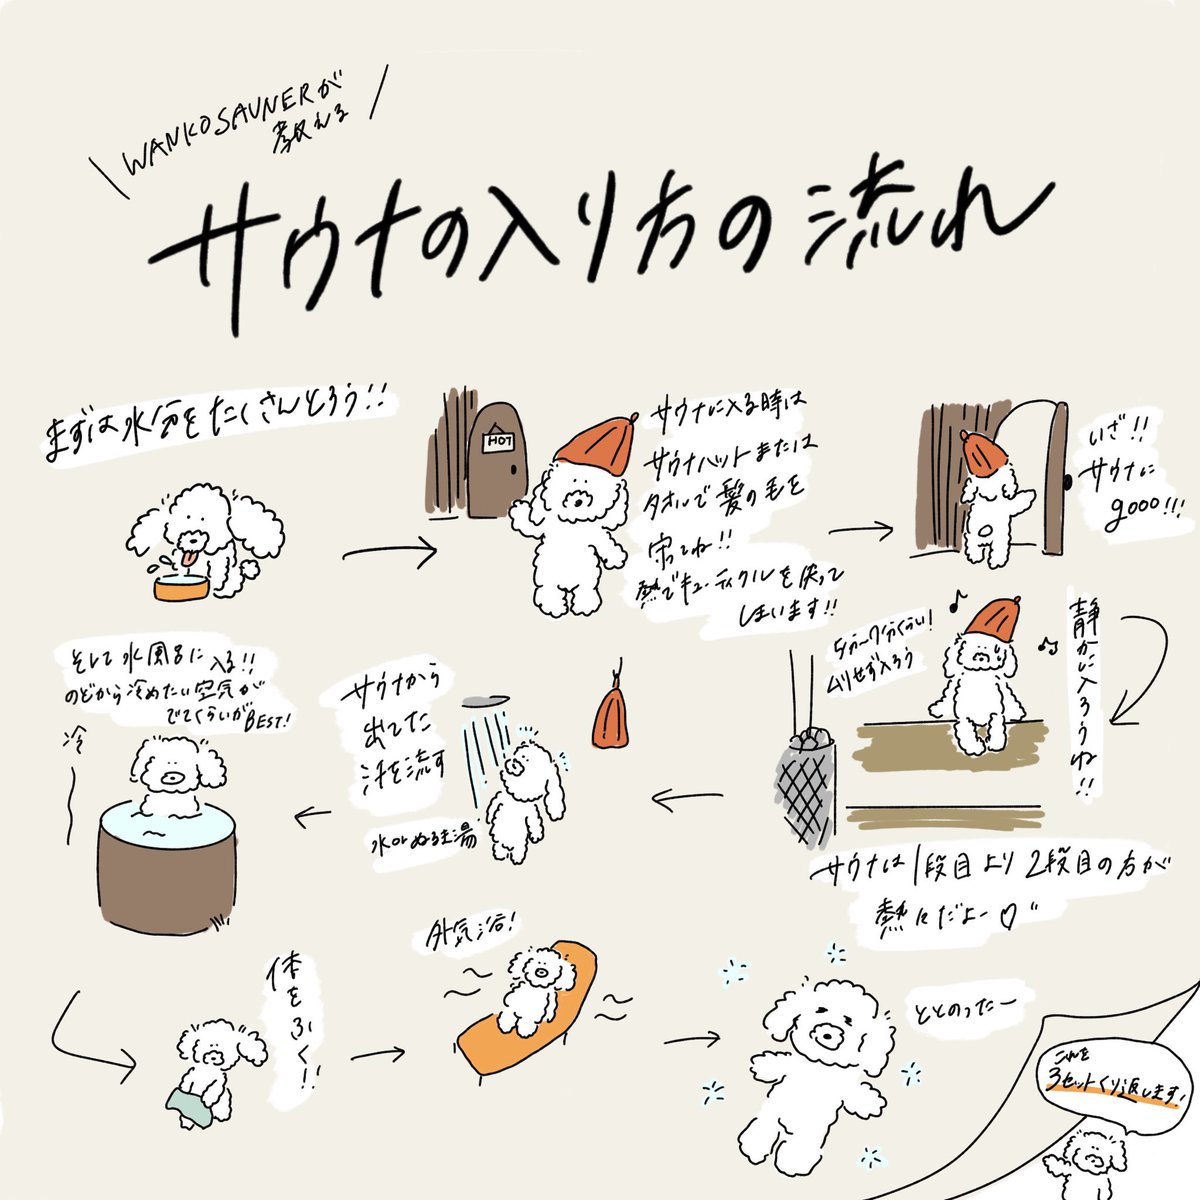 WANKOSAUNERが
教える
サウナの入り方の流れ
まずは水分をたくさんとろう!!
HOT
サウナに入る時は
サウナハットまたは
タオルで髪の毛を
守ってね!!
熱でキューティクルを失って
しまいます!!
いざ!!
サウナに
gooo!!!
静かに入ろうね!!
5分〜7分くらい!
ムリせず入ろう
サウナは1段目より2段目の方が
熱々だよー♡"
サウナから
出てた
汗を流す
水orぬるま湯
そして水風呂に入る!!
のどから冷めたい空気が
でてくらいがBEST!
冷
体をふく!!
外気浴!
ととのったー
これを
3セットくり返します!